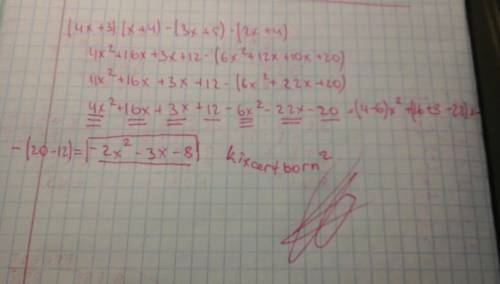 (4x+3)·(x+4) - (3x+5)·(2x+4)
4x²+16x+3x+12 - (6x²+12x+10x+20)
4x²+16x+3x+12 - (6x²+22x+20)
4x²+16x+3x+12-6x²-22x-20 = (4-6)x²+(16+3-22)x-
-(20-12)= -2x²-3x-8 kixcertborn²